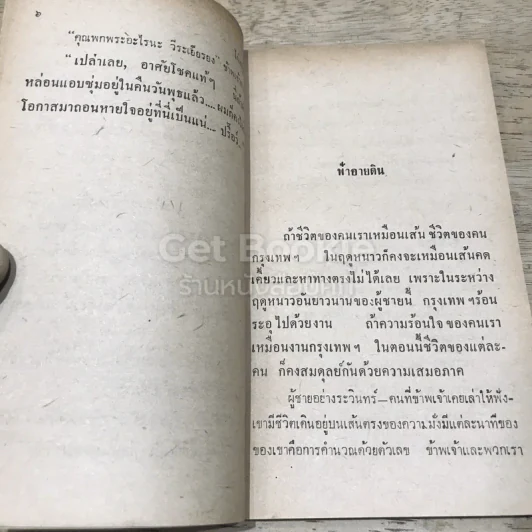 ๖
"คุณพกพระอะไรนะ วีระเยือรอง"
"เปล่าเลย, อาศัยโชคแท้ๆ
หล่อนแอบซุ่มอยู่ในคืนวันพุธแล้ว.... ผมก็
โอกาสมาถอนหายใจอยู่ที่นี่เป็นแน่....
ฟ้าอายดิน
ถ้าชีวิตของคนเราเหมือนเส้น ชีวิตของคน
กรุงเทพฯ ในฤดูหนาวก็คงจะเหมือนเส้นคด
เคี้ยวและหาทางตรงไม่ได้เลย เพราะในระหว่าง
ฤดูหนาวอันยาวนานของผู้ชายนี้ กรุงเทพฯร้อน
ระอุไปด้วยงาน ถ้าความร้อนใจของคนเรา
เหมือนงานกรุงเทพฯ ในตอนนี้ชีวิตของแต่ละ-
คน ก็คงสมดุลย์กันด้วยความเสมอภาค
ผู้ชายอย่างระวินทร์—คนที่ข้าพเจ้าเคยเล่าให้ฟัง-
เขามีชีวิตเดินอยู่บนเส้นตรงของความมั่งมีแต่ละนาทีของ
ของเขาคือการคำนวณด้วยตัวเลข ข้าพเจ้าและพวกเรา
Get Bookie
ร้านหนังสือเก่า